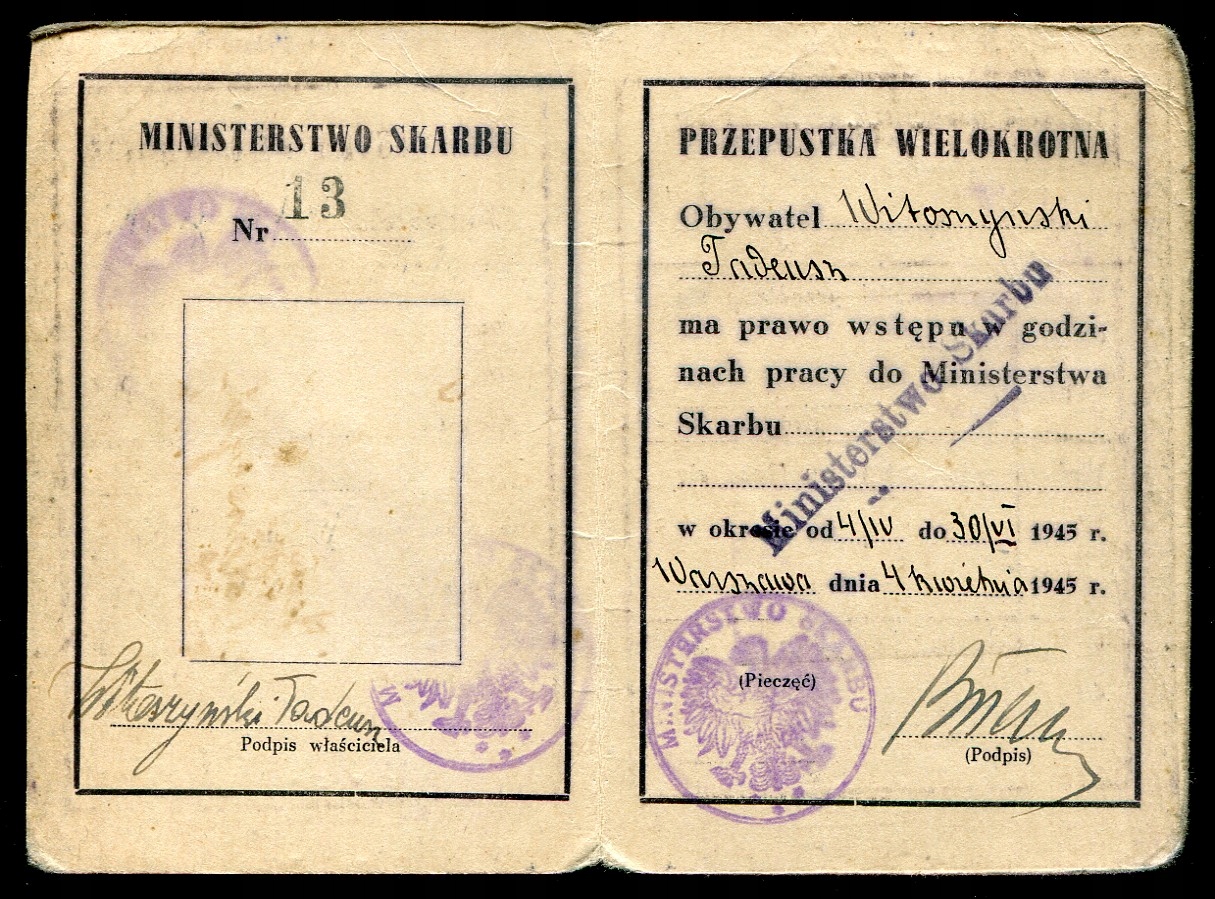 MINISTERSTWO SKARBU
Nr 13
Witoszyński Tadeusz
Podpis właściciela
PRZEPUSTKA WIELOKROTNA
Obywatel Witoszynski
Tadeusz
ma prawo wstępu w godzi-
nach pracy do Ministerstwa
Skarbu
w okresie od 4/IV do 30/VI 1945 r.
Warszawa dnia 4 kwietnia 1945 r.
Ministerstwo Skarbu
MINISTERSTWO SKARBU
(Pieczęć)
(Podpis)